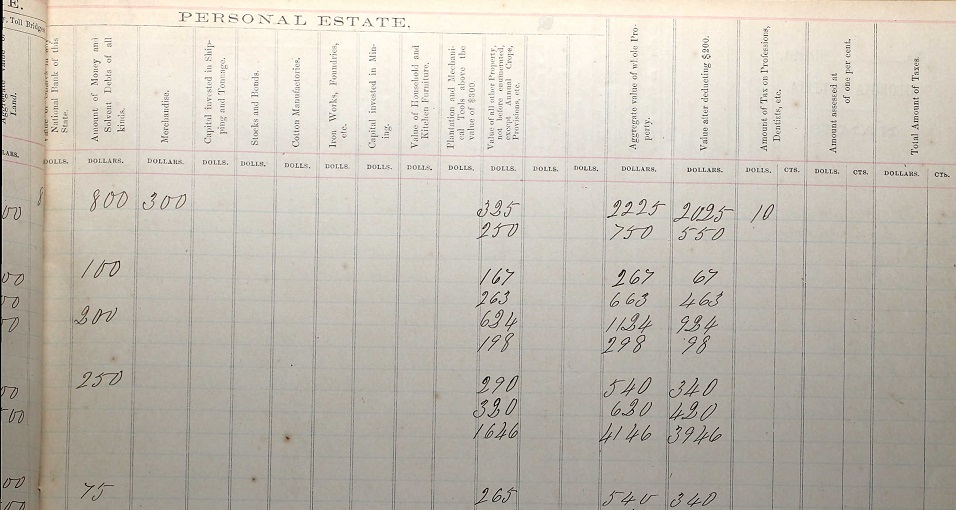 E.
PERSONAL ESTATE.
y, Toll Bridges
Land.
National Bank of this State.
Amount of Money and Solvent Debts of all kinds.
Merchandise.
Capital invested in Shipping and Tonnage.
Stocks and Bonds.
Cotton Manufactories.
Iron Works, Foundries, etc.
Capital invested in Mining.
Value of Household and Kitchen Furniture.
Plantation and Mechanical Tools above the value of $300.
Value of all other Property, not before enumerated, except Annual Crops, Provisions, etc.
Aggregate value of whole Property.
Value after deducting $200.
Amount of Tax on Professions, Dentists, etc.
Amount assessed at of one per cent.
Total Amount of Taxes.
LARS. DOLLS. DOLLARS. DOLLARS. DOLLS. DOLLS. DOLLS. DOLLS. DOLLS. DOLLS. DOLLS. DOLLS. DOLLS. DOLLS. DOLLARS. DOLLARS. DOLLS. CTS. DOLLS. CTS. DOLLARS. CTS.
00 8 800 300 325 2225 2025 10
250 750 550
00 100 167 267 67
50 263 663 463
50 200 624 1124 924
198 298 98
00 250 290 540 340
00 320 620 420
1646 4146 3946
00
75 265 540 340